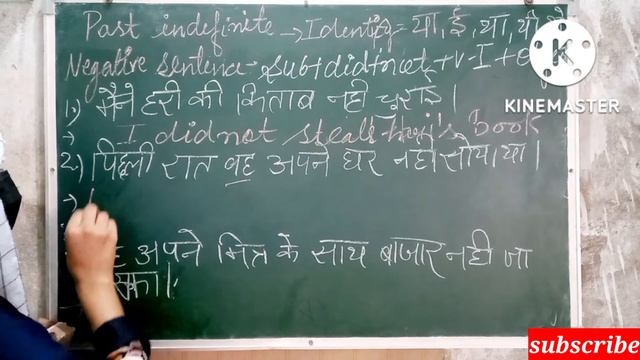 Past indefinite → Identify = या, ई, था, थी
Negative sentence - Sub + did + not + v-I + o
1) मैने हरी की किताब नही चुराई।
→ I did not steal Hari's book
2.) पिछली रात वह अपने घर नही सोया था।
→
अपने मित्र के साथ बाजार नही जा
सका।
KINEMASTER
subscribe